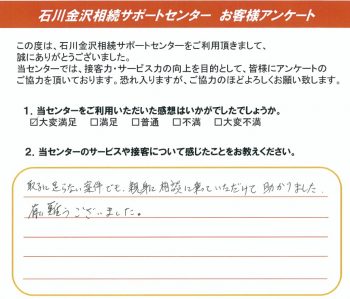 石川金沢相続サポートセンター お客様アンケート
この度は、石川金沢相続サポートセンターをご利用頂きまして、
誠にありがとうございました。
当センターでは、接客力・サービス力の向上を目的として、皆様にアンケートの
ご協力を頂いております。恐れ入りますが、ご協力のほどよろしくお願い致します。
1．当センターをご利用いただいた感想はいかがでしたでしょうか。
☑大変満足 □満足 □普通 □不満 □大変不満
2．当センターのサービスや接客について感じたことをお教えください。
取るに足らない案件でも、親身に相談に乗っていただけて助かりました。
有難うございました。